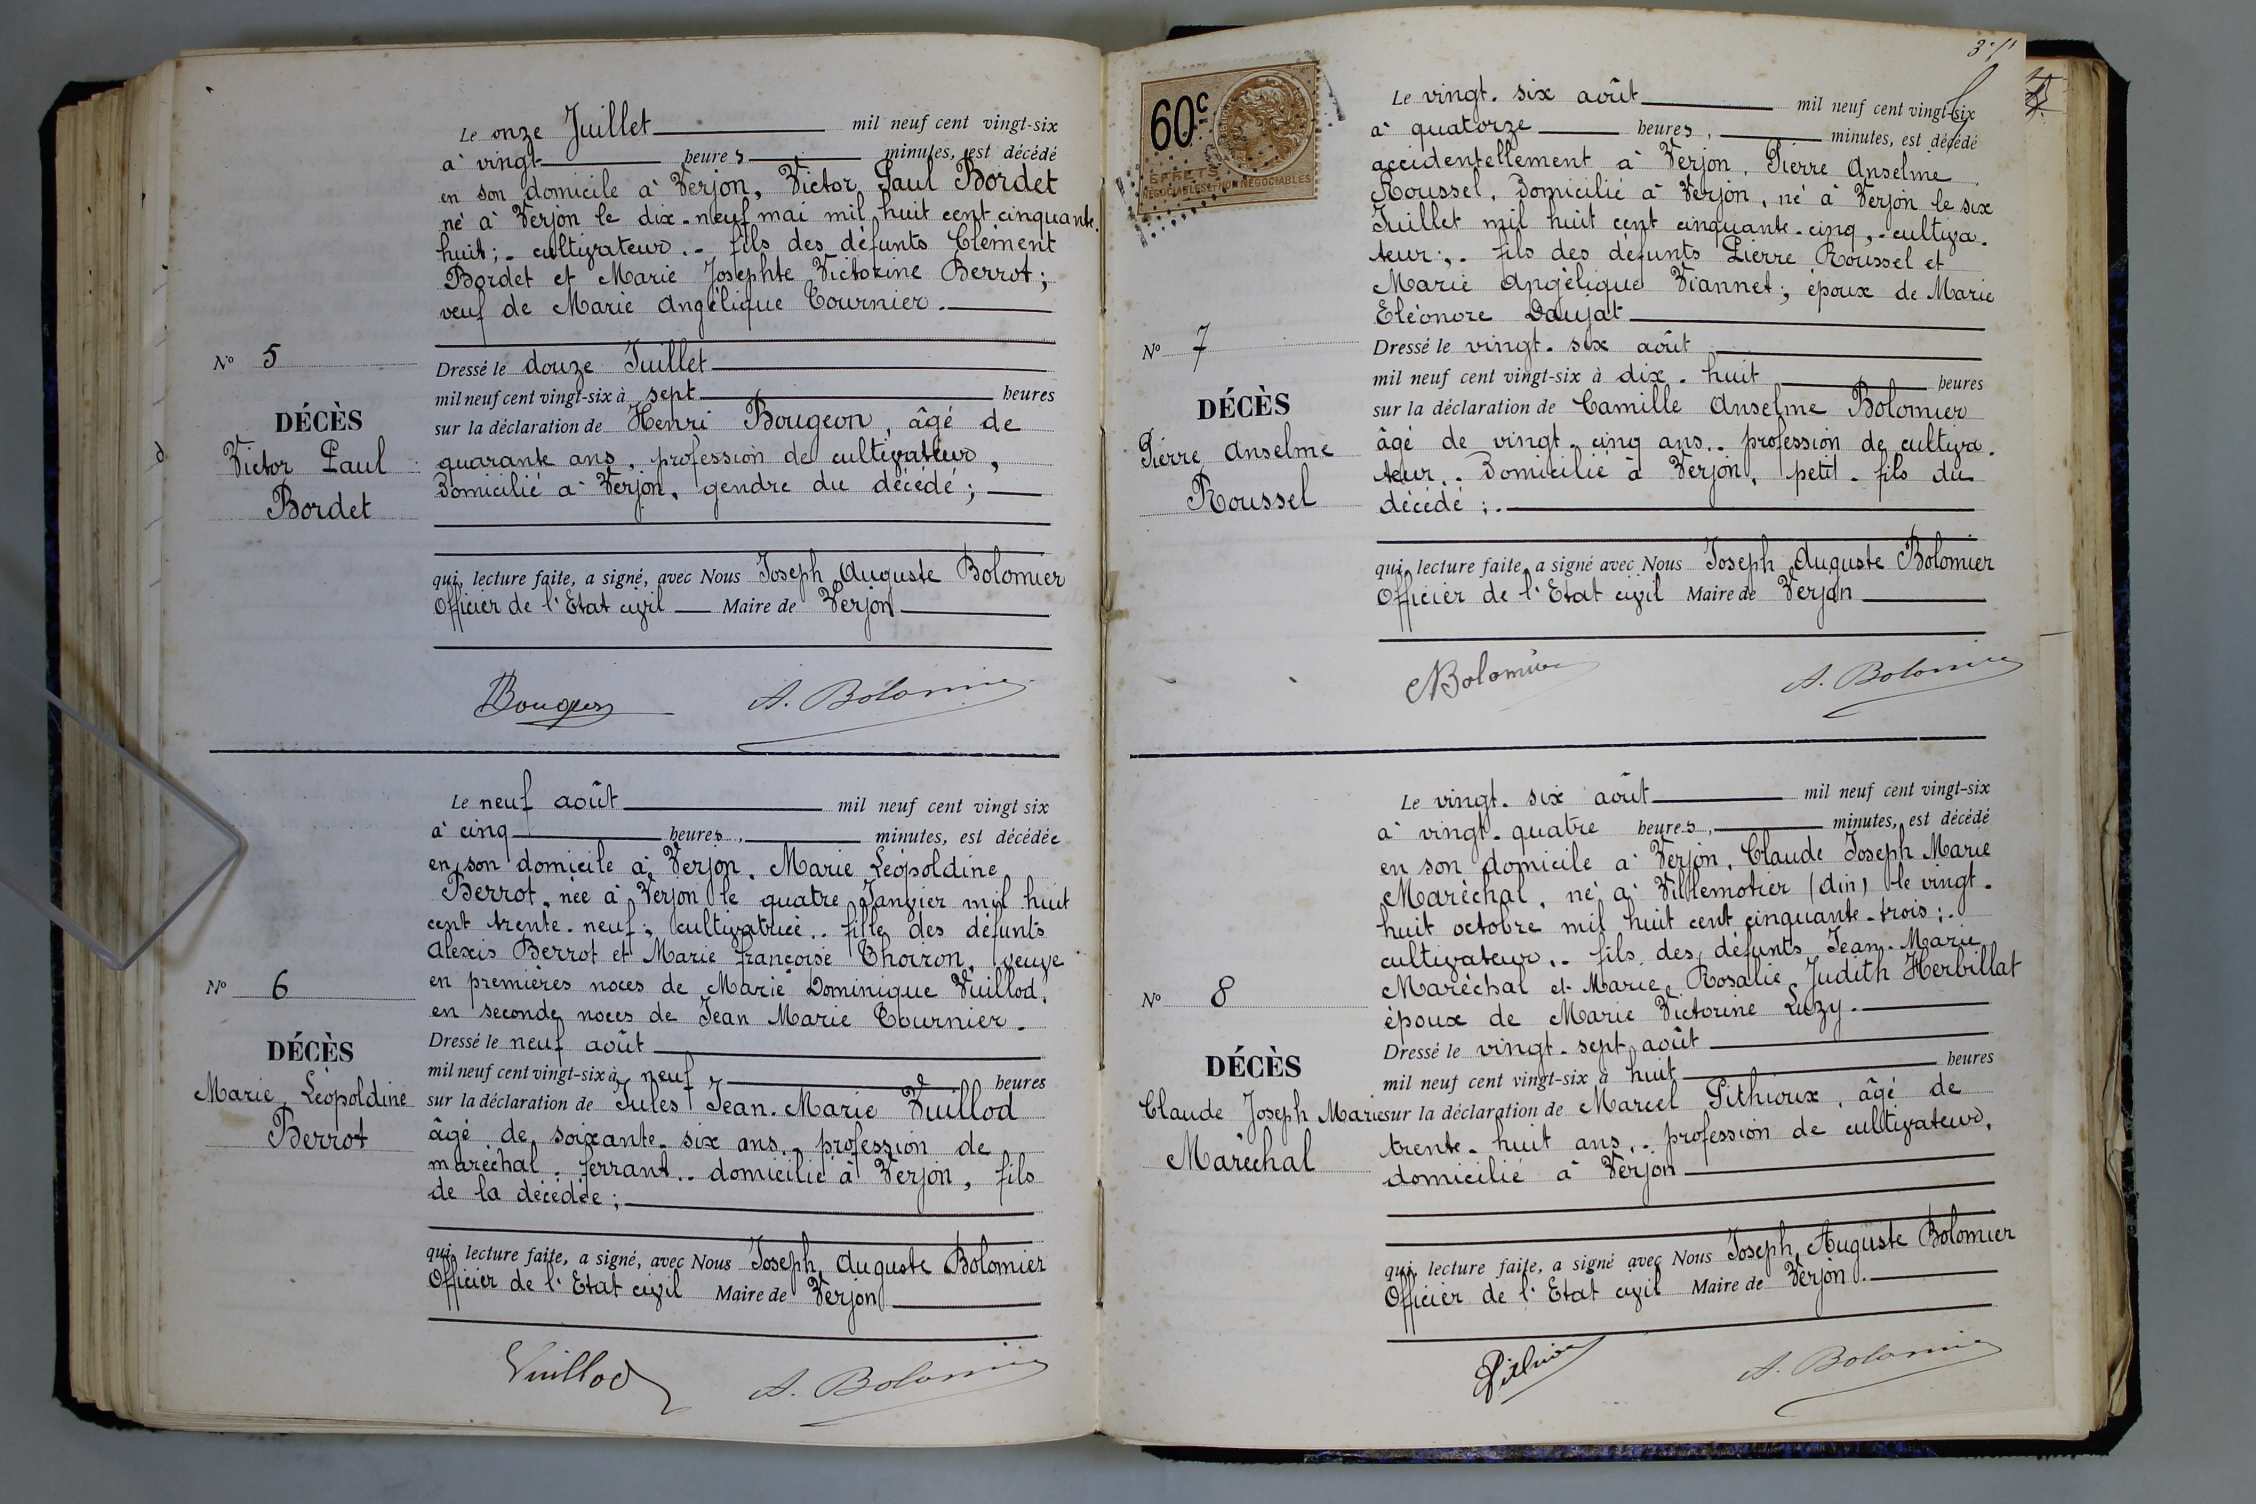 Le onze Juillet mil neuf cent vingt-six
à vingt heures minutes, est décédé
en son domicile à Verjon, Victor Paul Bordet
né à Verjon le dix-neuf mai mil huit cent cinquante.
huit; cultivateur.- fils des défunts Clément
Bordet et Marie Josephte Victorine Berrot;
veuf de Marie Angélique Tournier.
Nº 5
DÉCÈS
Victor Paul
Bordet
Dressé le douze Juillet
mil neuf cent vingt-six à sept heures
sur la déclaration de Henri Bougeon, âgé de
quarante ans, profession de cultivateur,
Domicilié à Verjon, gendre du décédé;
qui, lecture faite, a signé, avec Nous Joseph Auguste Bolomier
Officier de l'Etat civil Maire de Verjon
Bougeon A. Bolomier
Le neuf août mil neuf cent vingt six
à cinq heures, minutes, est décédée
en son domicile à Verjon, Marie Léopoldine
Berrot, née à Verjon le quatre Janvier mil huit
cent trente-neuf; cultivatrice.. fille des défunts
Alexis Berrot et Marie françoise Thoiron, veuve
en premières noces de Marie Dominique Vuillod,
en seconde noces de Jean Marie Tournier.
Nº 6
DÉCÈS
Marie Léopoldine
Berrot
Dressé le neuf août
mil neuf cent vingt-six à neuf heures
sur la déclaration de Jules Jean-Marie Vuillod
âgé de soixante-six ans.. profession de
maréchal-ferrant.. domicilié à Verjon, fils
de la décédée;
qui, lecture faite, a signé, avec Nous Joseph Auguste Bolomier
Officier de l'Etat civil Maire de Verjon
Vuillod A. Bolomier
60c
EFFETS
NÉGOCIABLES ET NON NÉGOCIABLES
Le vingt-six août mil neuf cent vingt-six
à quatorze heures, minutes, est décédé
accidentellement à Verjon, Pierre Anselme
Roussel, Domicilié à Verjon, né à Verjon le six
Juillet mil huit cent cinquante-cinq,-cultiva-
teur;. fils des défunts Pierre Roussel et
Marie Angélique Viannet; époux de Marie
Eléonore Daujat
Nº 7
DÉCÈS
Pierre Anselme
Roussel
Dressé le vingt-six août
mil neuf cent vingt-six à dix-huit heures
sur la déclaration de Camille Anselme Bolomier
âgé de vingt-cinq ans.. profession de cultiva-
teur.. Domicilié à Verjon, petit-fils du
décédé;.
qui, lecture faite, a signé avec Nous Joseph Auguste Bolomier
Officier de l'Etat civil Maire de Verjon
Bolomier A. Bolomier
Le vingt-six août mil neuf cent vingt-six
à vingt-quatre heures, minutes, est décédé
en son domicile à Verjon, Claude Joseph Marie
Maréchal, né à Villemotier (Ain) le vingt-
huit octobre mil huit cent cinquante-trois;.
cultivateur.. fils des défunts Jean-Marie
Maréchal et Marie Rosalie Judith Herbillat
époux de Marie Victorine Luzy.
Nº 8
DÉCÈS
Claude Joseph Marie
Maréchal
Dressé le vingt-sept août
mil neuf cent vingt-six à huit heures
sur la déclaration de Marcel Pithioux, âgé de
trente-huit ans,.. profession de cultivateur,
domicilié à Verjon
qui, lecture faite, a signé avec Nous Joseph Auguste Bolomier
Officier de l'Etat civil Maire de Verjon.
Pithioux A. Bolomier